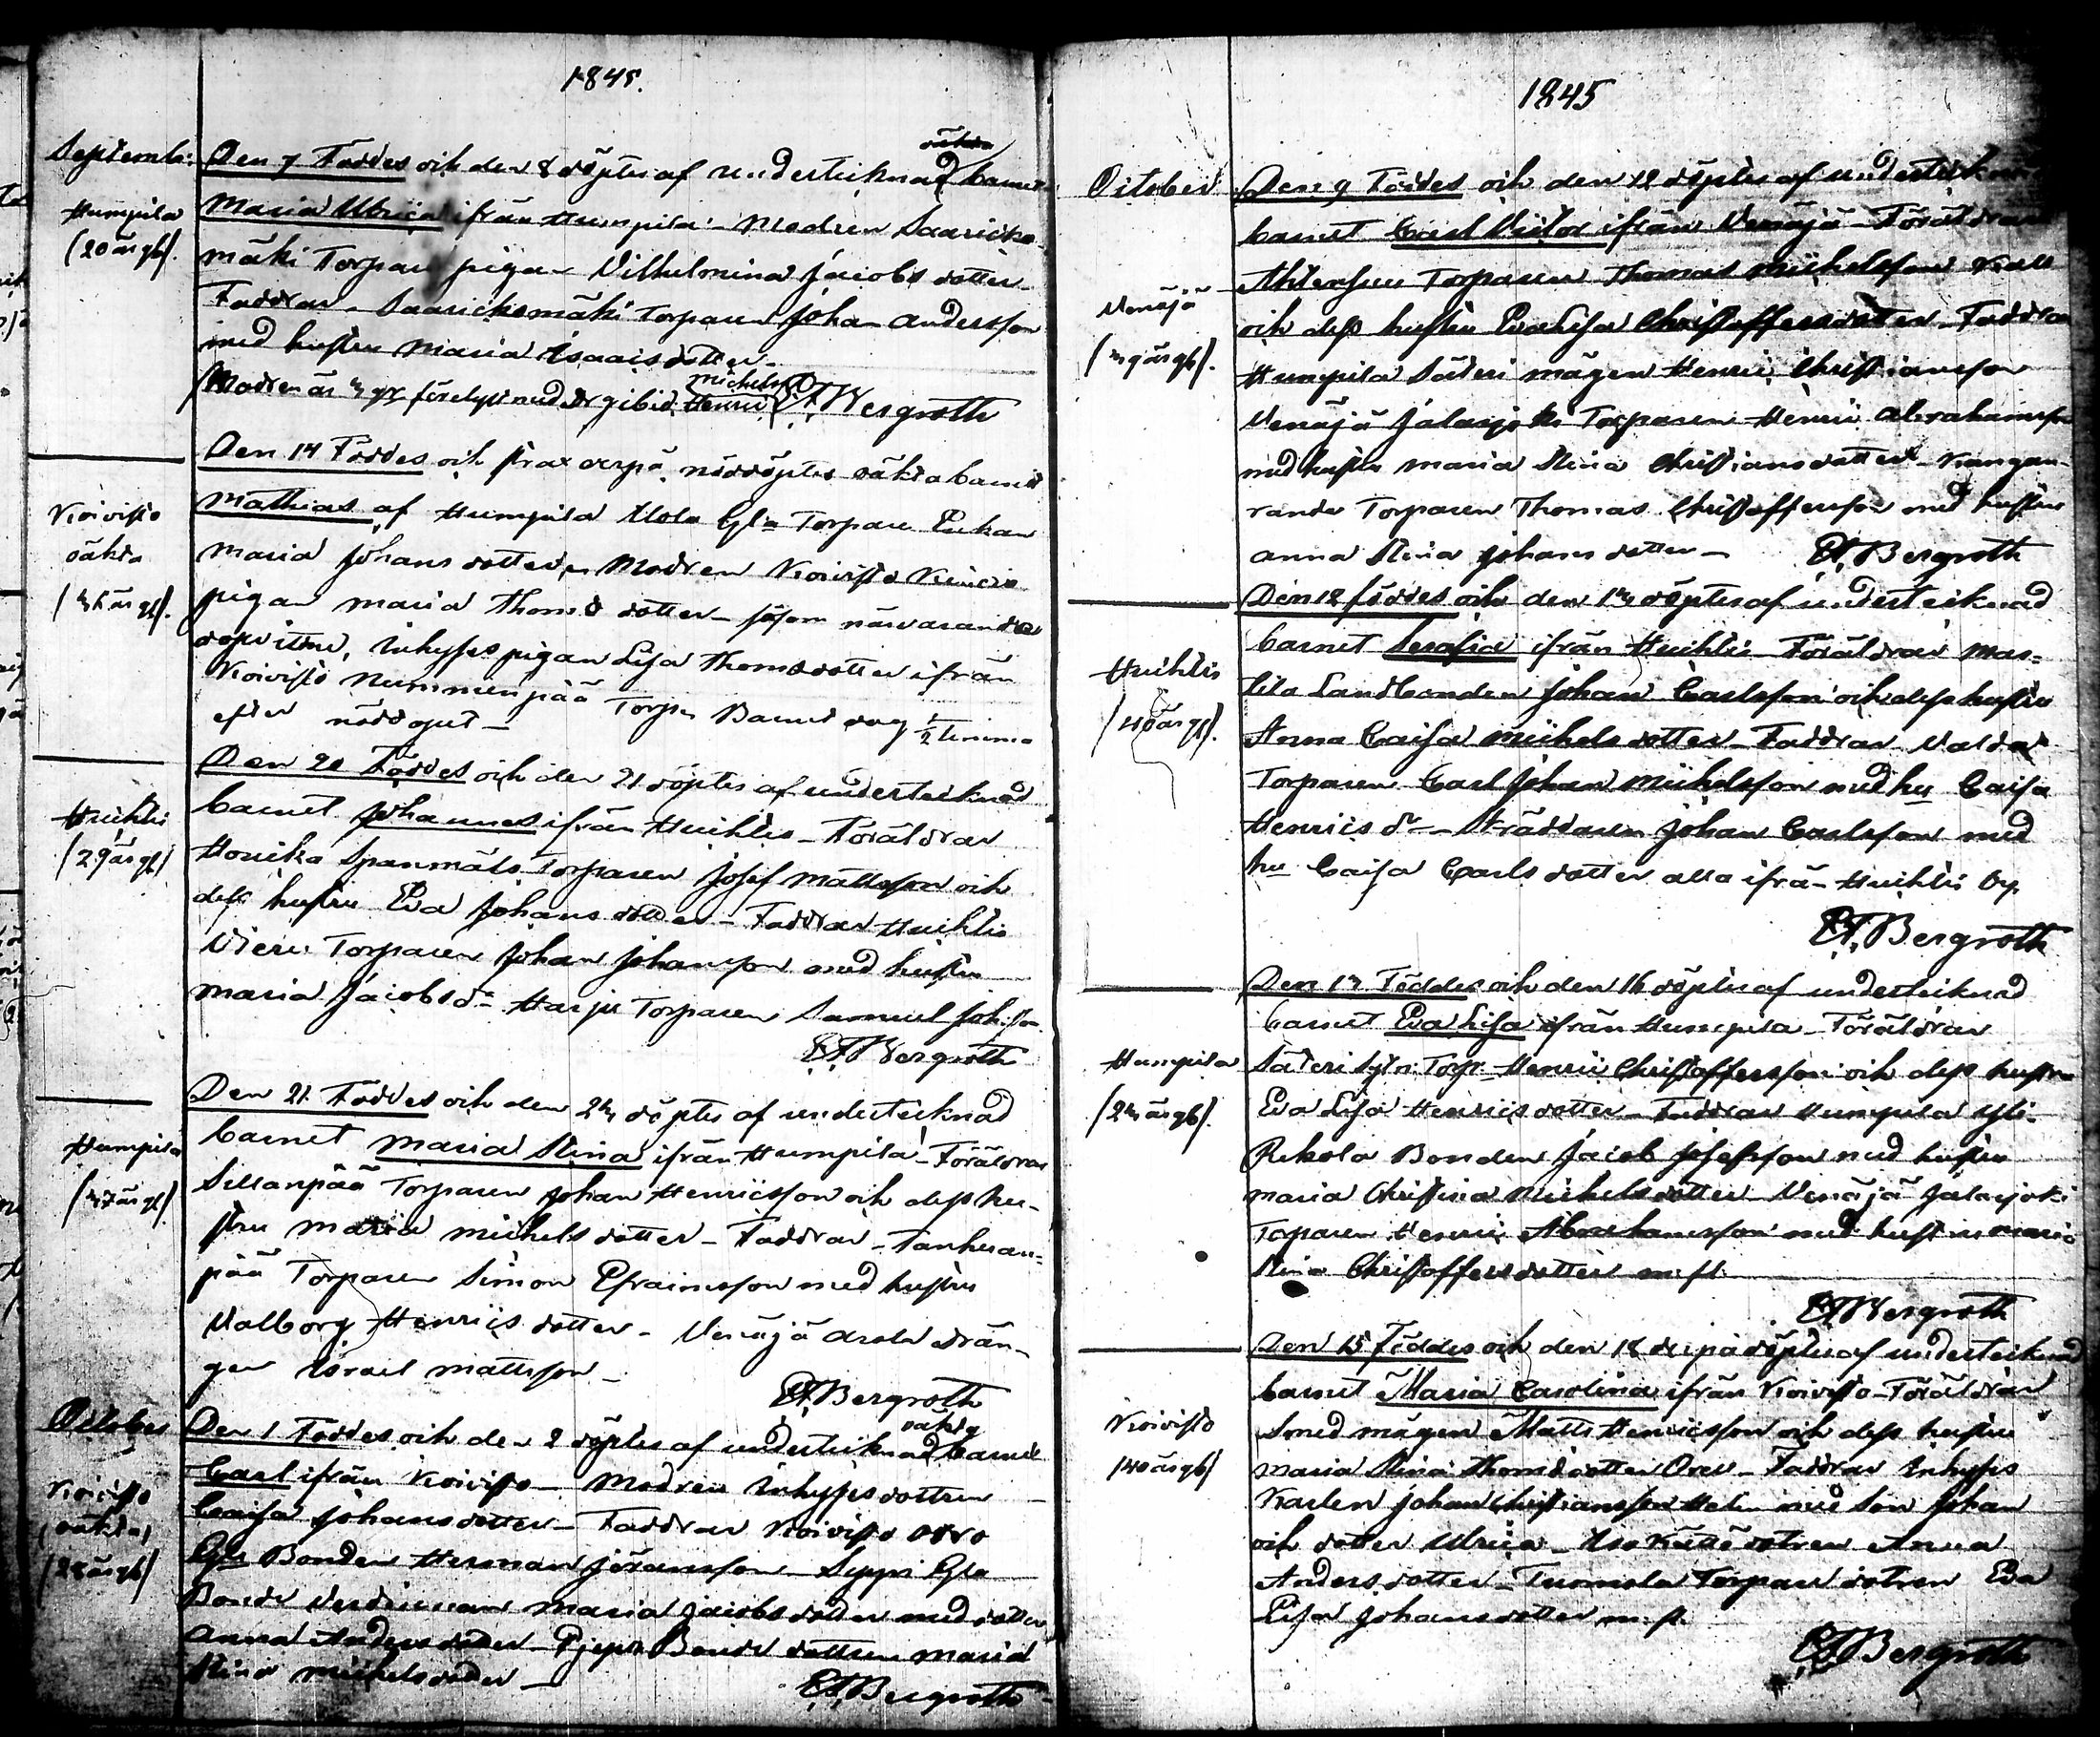 1845.
Septemb:
Den 7 Föddes och den 8 döptes af undertecknad oäkta barnet
Humpila
Maria Ulrica ifrån Humpila - Modren Saaricko-
(20 år gl).
mäki Torpare pigan Vilhelmina Jacobs dotter
Faddrar - Saarickomäki Torparen Johan Andersson
med hustru Maria Isaacs dotter -
Modren är gr förelyst med Michel EF Bergroth
Den 14 Föddes och strax derpå nöddöptes oäkta barnet
Koivisto
Mathias af Humpila Uola Torpare Enkan
oäkta
Maria Johans dotter, Modren Koivisto
pigan Maria Thoms dotter - såsom närvarande
dopvittne, inhyses pigan Lisa Thomsdotter ifrån
Koivisto Nummenpää Torp. Barnet dog 1/2 timma
efter nöddopet -
Den 20 Föddes och den 21 döptes af undertecknad
Huihtis
barnet Johannes ifrån Huihtis - Föräldrar
(29 år gl)
Houika Spanmåls Torparen Josef Mattsson och
dess hustru Eva Johans dotter - Faddrar Huihtis
Torparen Johan Johansson med hustru
Maria Jacobs dr Harju Torparen Samuel Joh. son
EF Bergroth
Den 21. Föddes och den 24 döptes af undertecknad
Humpila
barnet Maria Stina ifrån Humpila - Föräldrar
(47 år gl)
Sillanpää Torparen Johan Henricsson och dess hu-
stru Maria Michels dotter - Faddrar - Tanhuan-
pää Torparen Simon Efraimsson med hustru
Valborg Henrics dotter - Venäjä Arola drän-
gen Israel Mattsson -
EF Bergroth
October
Den 1 Föddes och den 2 döptes af undertecknad oäkta barnet
Koivisto
Carl ifrån Koivisto - Modren Inhyses dottren
(oäkta)
Caisa Johansdotter - Faddrar Koivisto
(28 år gl)
Bonden Herman Göransson - Seppi
Bonde Maria Jacobs dotter med dotter
Anna Anders dotter - Bonde dottren Maria
Stina Michels dotter -
EF Bergroth
1845
October
Den 9 Föddes och den 12 döptes af undertecknad
barnet Carl Victor ifrån Venäjä - Föräldrar
Venäjä
Ahtensuu Torparen Thomas Michelsson Kall
och dess hustru Eva Lisa Christoffersdotter - Faddrar
Humpila Säteri mågen Henric Christiansson
Venäjä Jalasjoki Torparen Henric Abrahamsson
med hustru Maria Stina Christians dotter - Kangan-
ranta Torparen Thomas Christoffersson med hustru
Anna Stina Johans dotter -
EF Bergroth
Den 12 föddes och den 14 döptes af undertecknad
Huihtis
barnet Serafia ifrån Huihtis Föräldrar Mar-
(40 år gl).
tila Landbonden Johan Carlsson och dess hustru
Anna Caisa Michels dotter - Faddrar
Torparen Carl Johan Michelsson med hu Caisa
Henrics dr - Skräddaren Johan Carlsson med
hu Caisa Carls dotter alla ifrån Huihtis by.
EF Bergroth
Den 14 Föddes och den 16 döptes af undertecknad
barnet Eva Lisa ifrån Humpila - Föräldrar
Humpila
Säteri Torp. Henric Christoffersson och dess hustru
(24 år gl).
Eva Lisa Henrics dotter - Faddrar Humpila Yli-
Rekola Bonden Jacob Josefsson med hustru
Maria Christina Michels dotter - Venäjä Jalasjoki
Torparen Henric Abrahamsson med hustru Maria
Stina Christoffers dotter m.fl.
EF Bergroth
Den 15 Föddes och den 18 derpå döptes af undertecknad
barnet Maria Carolina ifrån Koivisto - Föräldrar
Koivisto
Smed mågen Matts Henricsson och dess hustru
(40 år gl)
Maria Stina Thoms dotter - Faddrar Inhyses
Karlen Johan Christiansson med son Johan
och dotter Ulrica - dotren Anna
Anders dotter - Tuomola Torpare dotren Eva
Lisa Johansdotter m.fl.
EF Bergroth